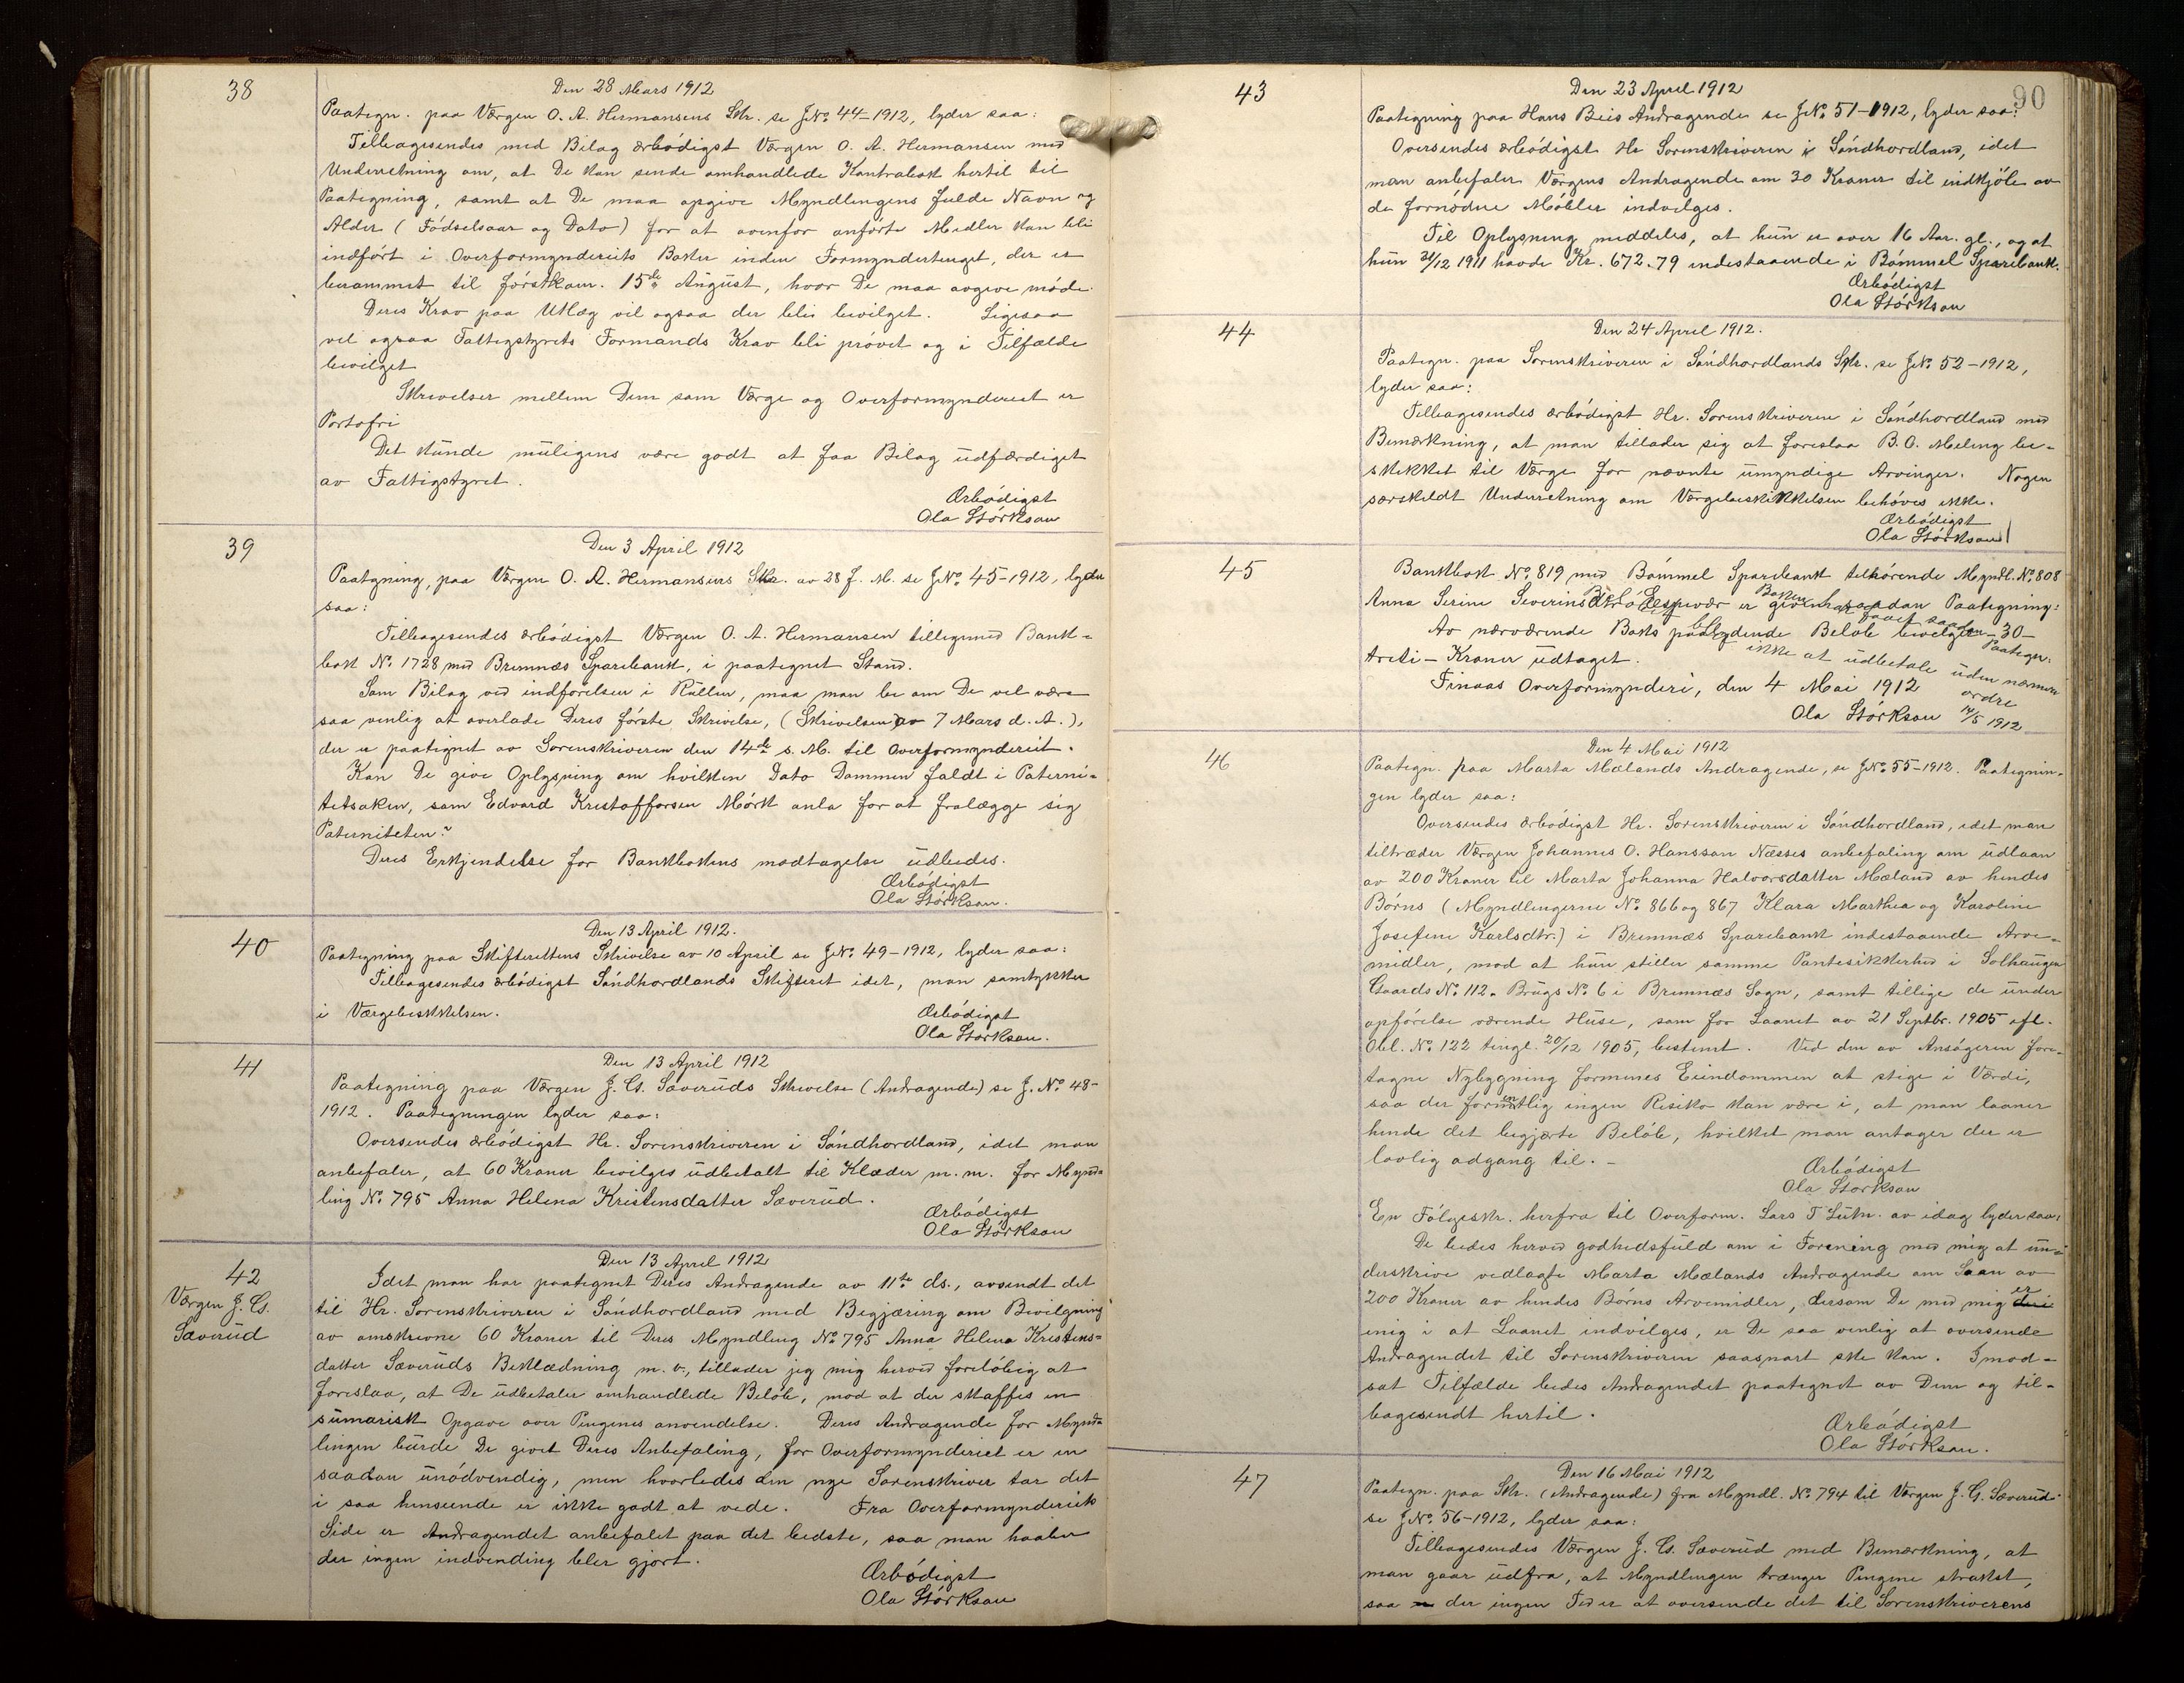 38
Den 28 Mars 1912
Paategn. paa Værgen O. A. Hermansens Skr. se JNo. 44-1912, lyder saa:
Tilbagesendes med Bilag ærbödigst Værgen O. A. Hermansen med
Underretning om, at De kan sende omhandlede Kontrabok hertil til
Paategning, samt at De maa opgive Myndlingens fulde Navn og
Alder (Födselsaar og Dato) for at ovenfor anförte Midler kan bli
indfört i Overformynderiets Böker inden Formyndertinget, der er
berammet til förstkom. 15de August, hvor De maa avgive möde.
Deres Krav paa Utlæg vil ogsaa der bli bevilget. Ligesaa
vil ogsaa Fattigstyrets Formands Krav bli prövet og i Tilfælde
bevilget
Skrivelser mellem Dem som Værge og Overformynderiet er
Portofri
Det kunde muligens være godt at faa Bilag udfærdiget
av Fattigstyret.
Ærbödigst
Ola Störkson
39
Den 3 April 1912
Paategning, paa Værgen O. A. Hermansens Skr. av 28 f. M. se JNo. 45-1912, lyder
saa:
Tilbagesendes ærbödigst Værgen O. A. Hermansen tillegmed Bank-
bok No. 1728 med Bremnæs Sparebank, i paategnet Stand.
Som Bilag ved indförelsen i Rullen, maa man be om De vil være
saa venlig at overlade Deres förste Skrivelse, (Skrivelsen av 7 Mars d. A.),
der er paategnet av Sorenskriveren den 14de s. M. til Overformynderiet.
Kan De give Oplysning om hvilken Dato Dommen faldt i Paterni-
tetsaken, som Edvard Kristoffersen Mörk anla for at fralægge sig
Paterniteten?
Deres Erkjendelse for Bankbokens modtagelse udbedes.
Ærbödigst
Ola Störkson.
40
Den 13 April 1912.
Paategning paa Skifterettens Skrivelse av 10 April se JNo. 49-1912, lyder saa:
Tilbagesendes ærbödigst Söndhordlands Skifteret idet, man samtykker
i Værgebeskikkelsen.
Ærbödigst
Ola Störkson.
41
Den 13 April 1912
Paategning paa Værgen J. G. Sæveruds Skrivelse (Andragende) se J. No. 48-
1912. Paategningen lyder saa:
Oversendes ærbödigst Hr. Sorenskriveren i Söndhordland, idet man
anbefaler, at 60 Kroner bevilges udbetalt til Klæder m. m. for Mynd-
ling No. 795 Anna Helena Kristensdatter Sæverud.
Ærbödigst
Ola Störkson
42
Værgen J. G.
Sæverud
Den 13 April 1912
Idet man har paategnet Deres Andragende av 11te ds., avsendt det
til Hr. Sorenskriveren i Söndhordland med Begjæring om Bevilgning
av omskrevne 60 Kroner til Deres Myndling No. 795 Anna Helena Kristens-
datter Sæveruds Beklædning m. v., tillader jeg mig herved forelöbig at
foreslaa, at De udbetaler omhandlede Belöb, mod at der skaffes en
sumarisk Opgave over Pengenes anvendelse. Deres Andragende for Mynd-
lingen burde De givet Deres Anbefaling, for Overformynderiet er en
saadan unödvendig, men hvorledes den nye Sorenskriver tar det
i saa henseende er ikke godt at vede. Fra Overformynderiets
Side er Andragendet anbefalet paa det bedste, saa man haaber
der ingen indvending bler gjort.
Ærbödigst
Ola Störkson
90
43
Den 23 April 1912
Paategning paa Hans Beis Andragende se JNo. 51-1912, lyder saa:
Oversendes ærbödigst Hr Sorenskriveren i Söndhordland, idet
man anbefaler Værgens Andragende om 30 Kroner til indkjöb av
de fornödne Möbler indvilges.
Til Oplysning meddeles, at hun er over 16 Aar. gl., og at
hun 31/12 1911 havde Kr. 672.79 indestaaende i Bömmel Sparebank.
Ærbödigst
Ola Störkson
44
Den 24 April 1912.
Paategn. paa Sorenskriveren i Söndhordlands Skr. se JNo. 52-1912,
lyder saa:
Tilbagesendes ærbödigst Hr. Sorenskriveren i Söndhordland med
Bemærkning, at man tillader sig at foreslaa B. O. Meling be-
skikket til Værge for nævnte umyndige Arvinger. Nogen
særskildt Underretning om Værgebeskikkelsen behöves ikke.
Ærbödigst
Ola Störkson
45
Bankbok No. 819 med Bömmel Sparebank tilhörende Myndl. No. 808
Anna Serine Severinsdtr. Espevær er given saadan Paategning:
Av nærværende Boks paalydende Belöb bevilges - 30 -
treti - Kroner udtaget.
Boken har faaet saadan Paategn:
ikke at udbetale uden nærmere
ordre
14/5 1912
Finaas Overformynderi, den 4 Mai 1912
Ola Störkson
46
Den 4 Mai 1912
Paategn. paa Marta Mælands Andragende, se JNo. 55-1912. Paategnin-
gen lyder saa:
Oversendes ærbödigst Hr. Sorenskriveren i Söndhordland, idet man
tiltræder Værgen Johannes O. Hansson Næsses anbefaling om udlaan
av 200 Kroner til Marta Johanna Halvorsdatter Mæland av hendes
Börns (Myndlingerne No. 866 og 867 Klara Marthea og Karoline
Josefine Karlsdtr.) i Bremnæs Sparebank indestaaende Arve-
midler, mod at hun stiller samme Pantesikkerhed i Solhaugen
Gaards No. 112. Brugs No. 6 i Bremnæs Sogn, samt tillige de under
opförelse værende Huse, som for Laanet av 21 Septbr. 1905 efl.
Obl. No. 122 tingl. 20/12 1905, bestemt. Ved den av Ansögeren fore-
tagne Nybygning formenes Eiendommen at stige i Værdi,
saa der formentlig ingen Risiko kan være i, at man laaner
hende det begjærte Belöb, hvilket man antager der er
lovlig adgang til. -
Ærbödigst
Ola Störkson
En Fölgeskr. herfra til Overform. Lars T Lutn. av idag lyder saa:
De bedes herved godhedsfuld om i Forening med mig at un-
derskrive vedlagte Marta Mælands Andragende om Laan av
200 Kroner av hendes Börns Arvemidler, dersom De med mig er
enig i at Laanet indvilges, er De saa venlig at oversende
Andragendet til Sorenskriveren saasnart ske kan. I mod-
sat Tilfælde bedes Andragendet paategnet av Dem og til-
bagesendt hertil.
Ærbödigst
Ola Störkson.
47
Den 16 Mai 1912
Paategn. paa Skr. (Andragende) fra Myndl. No. 794 til Værgen J. G. Sæverud
se JNo. 56-1912, lyder saa:
Tilbagesendes Værgen J. G. Sæverud med Bemærkning, at
man gaar udfra, at Myndlingen trænger Pengene strakst,
saa der ingen Tid er at oversende det til Sorenskriverens